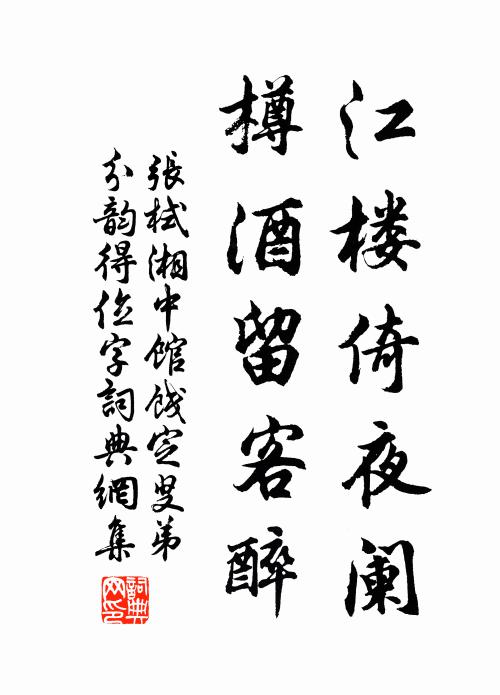 江楼倚夜阑
樽酒留客醉
張栻湘中馆餞定叟弟
分韵得位字詞典網集
詞典網印